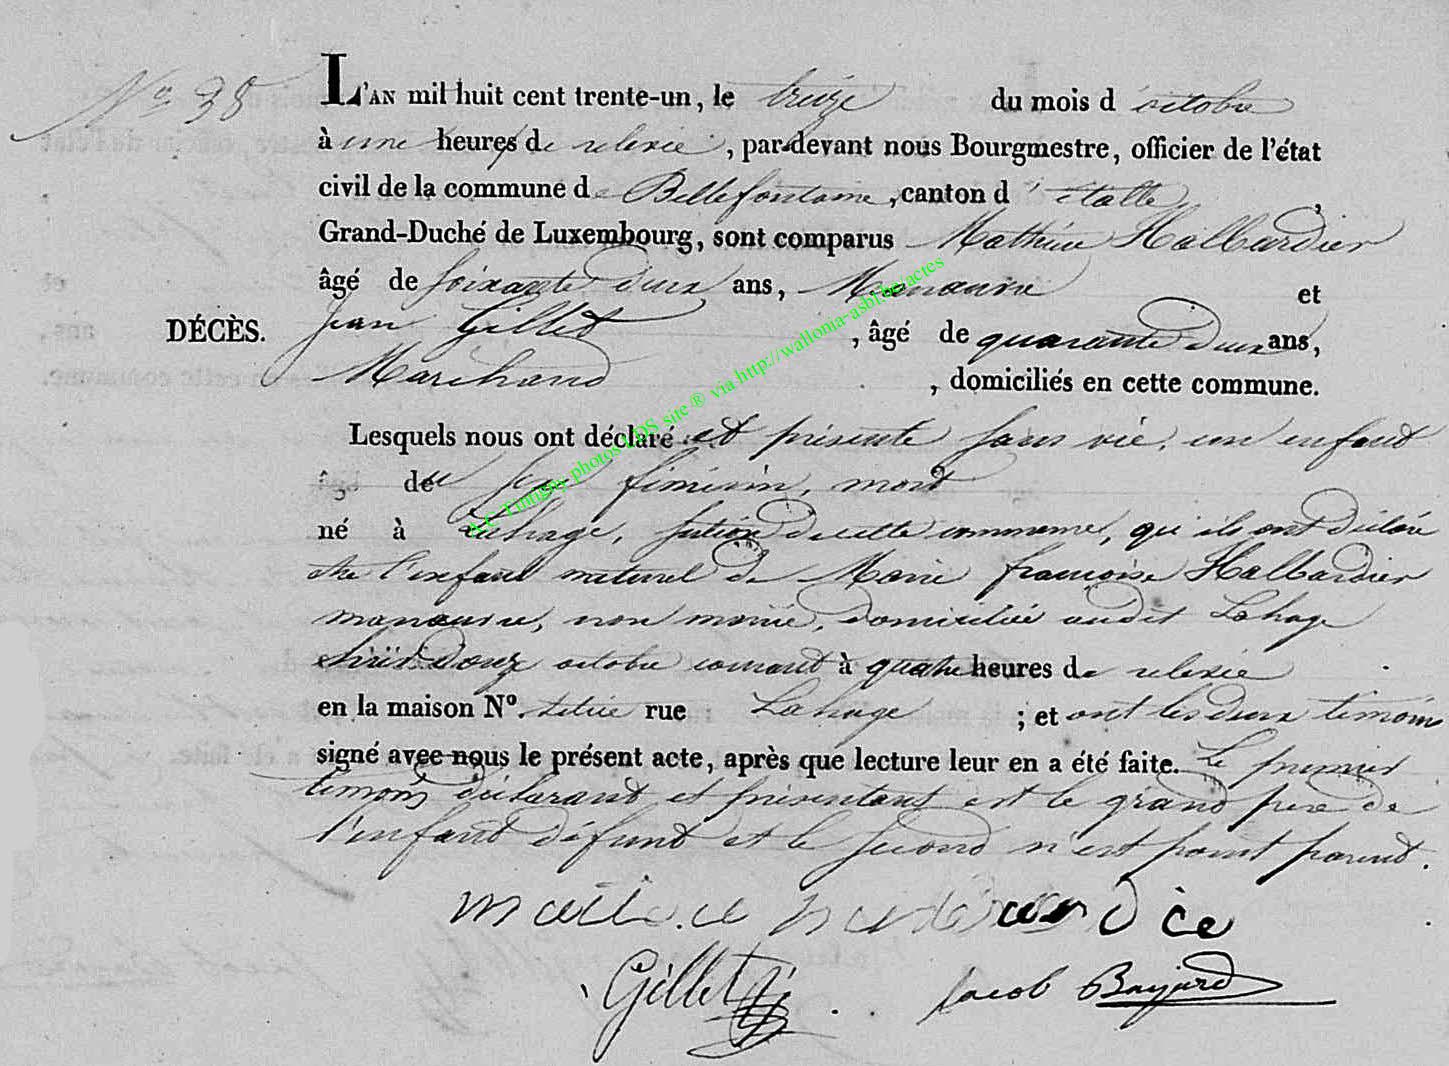 N° 38
L'AN mil huit cent trente-un, le treize du mois d'octobre
à une heures de relevée, par-devant nous Bourgmestre, officier de l'état
civil de la commune de Bellefontaine, canton d'étalle,
Grand-Duché de Luxembourg, sont comparus Mathieu Halbardier
âgé de soixante deux ans, Manœuvre et
DÉCÈS. Jean Gillet, âgé de quarante deux ans,
Marchand, domiciliés en cette commune.
Lesquels nous ont déclaré et présenté sans vie, un enfant
du sexe féminin, mort
né à Lahage, section de cette commune, qu'ils ont déclaré
être l'enfant naturel de Marie françoise Halbardier
manœuvre, non mariée, domiciliée audit Lahage
douze octobre courant à quatre heures de relevée
en la maison N°. rue Lahage ; et ont les deux témoins
signé avec nous le présent acte, après que lecture leur en a été faite. Le premier
témoin déclarant et présentant est le grand père de
l'enfant défunt et le second n'est point parent.
Gillet Jacob Bayard
A.C. Tintigny photos GDS site ® via http://wallonia-asbl.be/actes